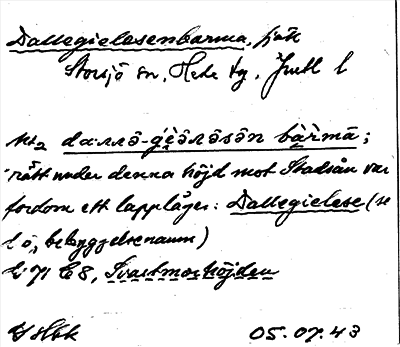 Dallegielesenbarma, fjäll
Storsjö sn, Hede tg, Jmtl l
da·ʌʌə̂-g̀èə̂ʌə̂sə̂n bàr̀mā;
rätt under denna höjd mot Stadsån var
fordom ett lappläger: Dallegielese (se
l ö, bebyggelsenamn)
E 71 C 8, Svartmorhöjden
05.07.43